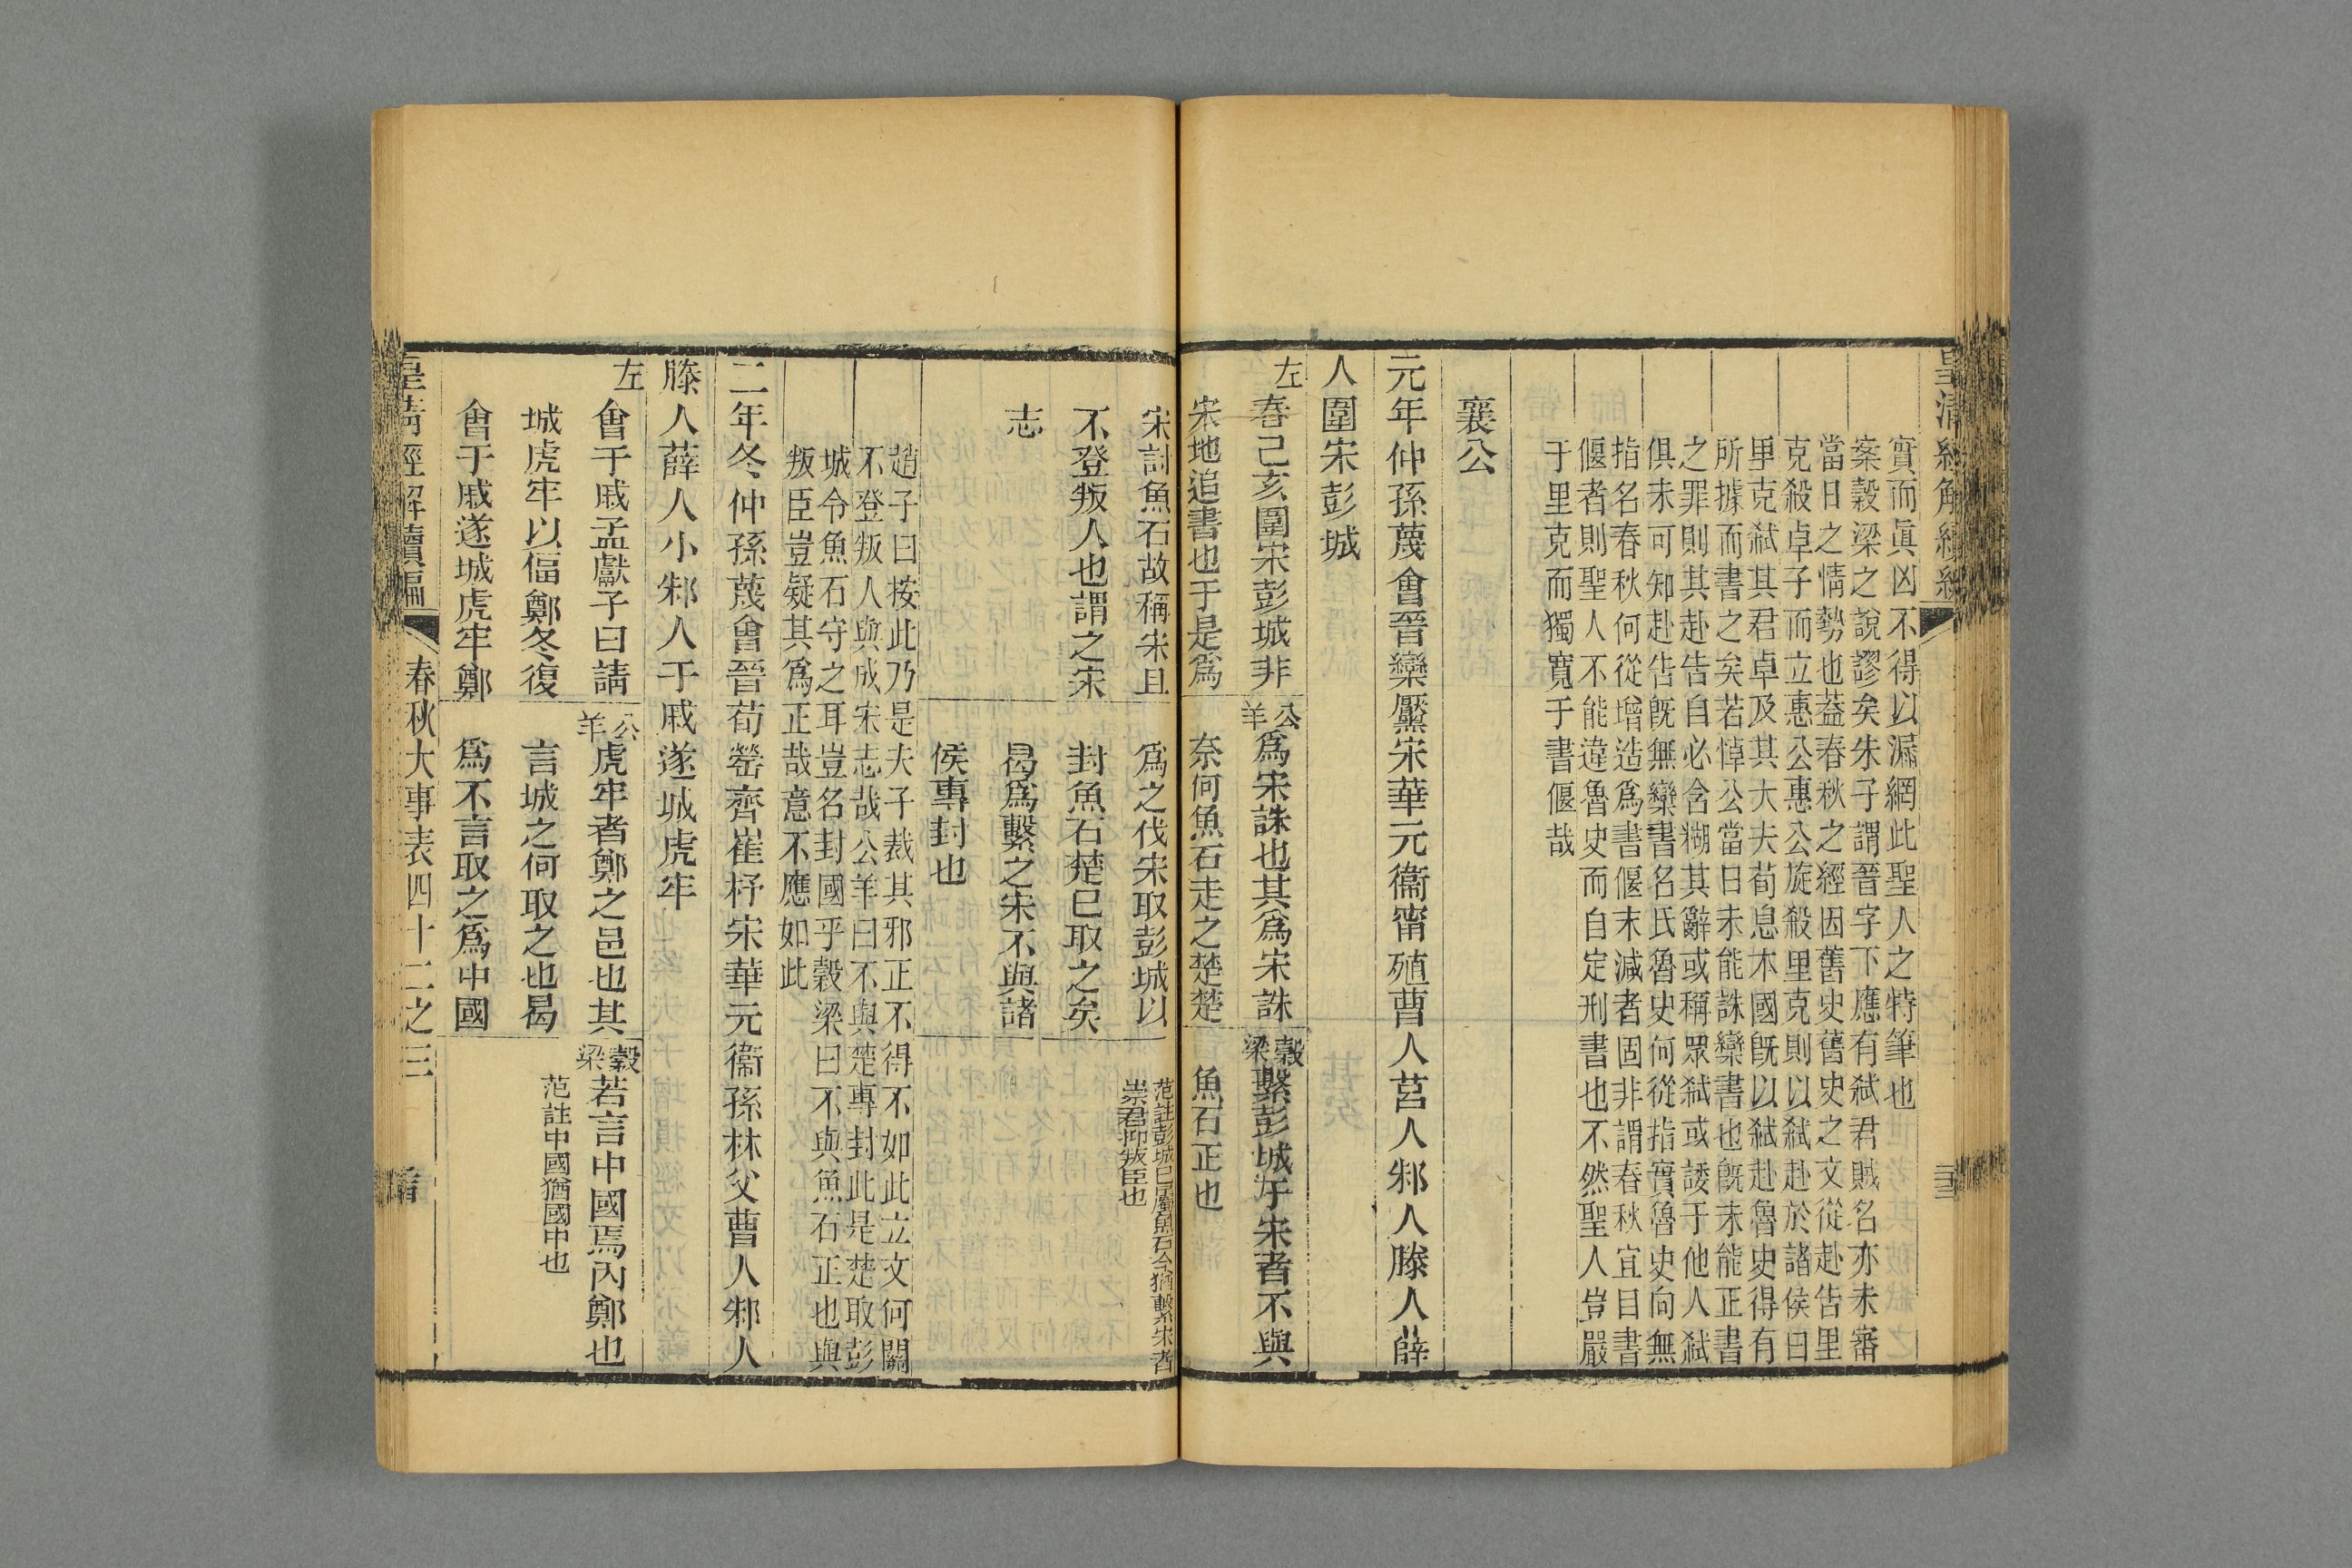 實而眞凶不得以漏網此聖人之特筆也
案穀梁之說謬矣朱子謂晉字下應有弑君賊名亦未審
當日之情勢也蓋春秋之經因舊史舊史之文從赴告里
克殺卓子而立惠公惠公旋殺里克則以弑赴於諸侯曰
里克弑其君卓及其大夫荀息本國旣以弑赴魯史得有
所據而書之矣若悼公當日未能誅欒書也旣未能正書
之罪則其赴告自必含糊其辭或稱眾弑或諉于他人弑
俱未可知赴告旣無欒書名氏魯史何從指實魯史向無
指名春秋何從增造爲書偃末減者固非謂春秋宜目書
偃者則聖人不能違魯史而自定刑書也不然聖人豈嚴
于里克而獨寬于書偃哉
襄公
元年仲孫蔑會晉欒黶宋華元衞甯殖曹人莒人邾人滕人薛
人圍宋彭城
左
春己亥圍宋彭城非
宋地追書也于是爲
宋討魚石故稱宋且
不登叛人也謂之宋
志
公羊
爲宋誅也其爲宋誅
奈何魚石走之楚楚
爲之伐宋取彭城以
封魚石楚巳取之矣
曷爲繫之宋不與諸
侯專封也
穀梁
繫彭城于宋者不與
魚石正也
范註彭城巳屬魚石今猶繫宋者
崇君抑叛臣也
趙子曰按此乃是夫子裁其邪正不得不如此立文何關
不登叛人與成宋志哉公羊曰不與楚專封此是楚取彭
城令魚石守之耳豈名封國乎穀梁曰不與魚石正也與
叛臣豈疑其爲正哉意不應如此
二年冬仲孫蔑會晉荀罃齊崔杼宋華元衞孫林父曹人邾人
滕人薛人小邾人于戚遂城虎牢
左
會于戚孟獻子曰請
城虎牢以偪鄭冬復
會于戚遂城虎牢鄭
公羊
虎牢者鄭之邑也其
言城之何取之也曷
爲不言取之爲中國
穀梁
若言中國焉內鄭也
范註中國猶國中也
皇淸經解續編
春秋大事表四十二之三